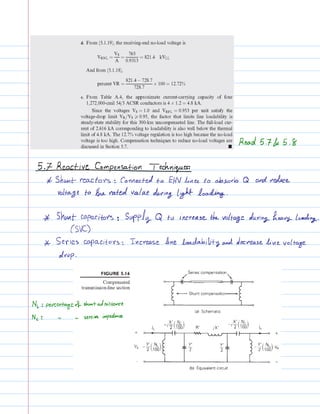 d. From (5.1.19), the receiving-end no-load voltage is
V_RNL = V_S / A = 765 / 0.9313 = 821.4 kV_LL
And from (5.1.18),
percent VR = (821.4 − 728.7) / 728.7 × 100 = 12.72%
e. From Table A.4, the approximate current-carrying capacity of four
1,272,000-cmil 54/3 ACSR conductors is 4 × 1.2 = 4.8 kA.
Since the voltages V_S = 1.0 and V_RFL = 0.953 per unit satisfy the
voltage-drop limit V_R/V_S ≥ 0.95, the factor that limits line loadability is
steady-state stability for this 300-km uncompensated line. The full-load cur-
rent of 2.616 kA corresponding to loadability is also well below the thermal
limit of 4.8 kA. The 12.7% voltage regulation is too high because the no-load
voltage is too high. Compensation techniques to reduce no-load voltages are
discussed in Section 5.7. ■
Read 5.7 & 5.8
5.7 Reactive Compensation Techniques:
* Shunt reactors : Connected to EHV lines to absorb Q and reduce
voltage to the rated value during light loading.
* Shunt capacitors : Supply Q to increase the voltage during heavy loading.
(SVC)
* Series capacitors : Increase line loadability and decrease line voltage
drop.
FIGURE 5.14
Compensated
transmission-line section
Series compensation
Shunt compensation
(a) Schematic
N_L : percentage of shunt admittance
N_C : " " series impedance
(b) Equivalent circuit